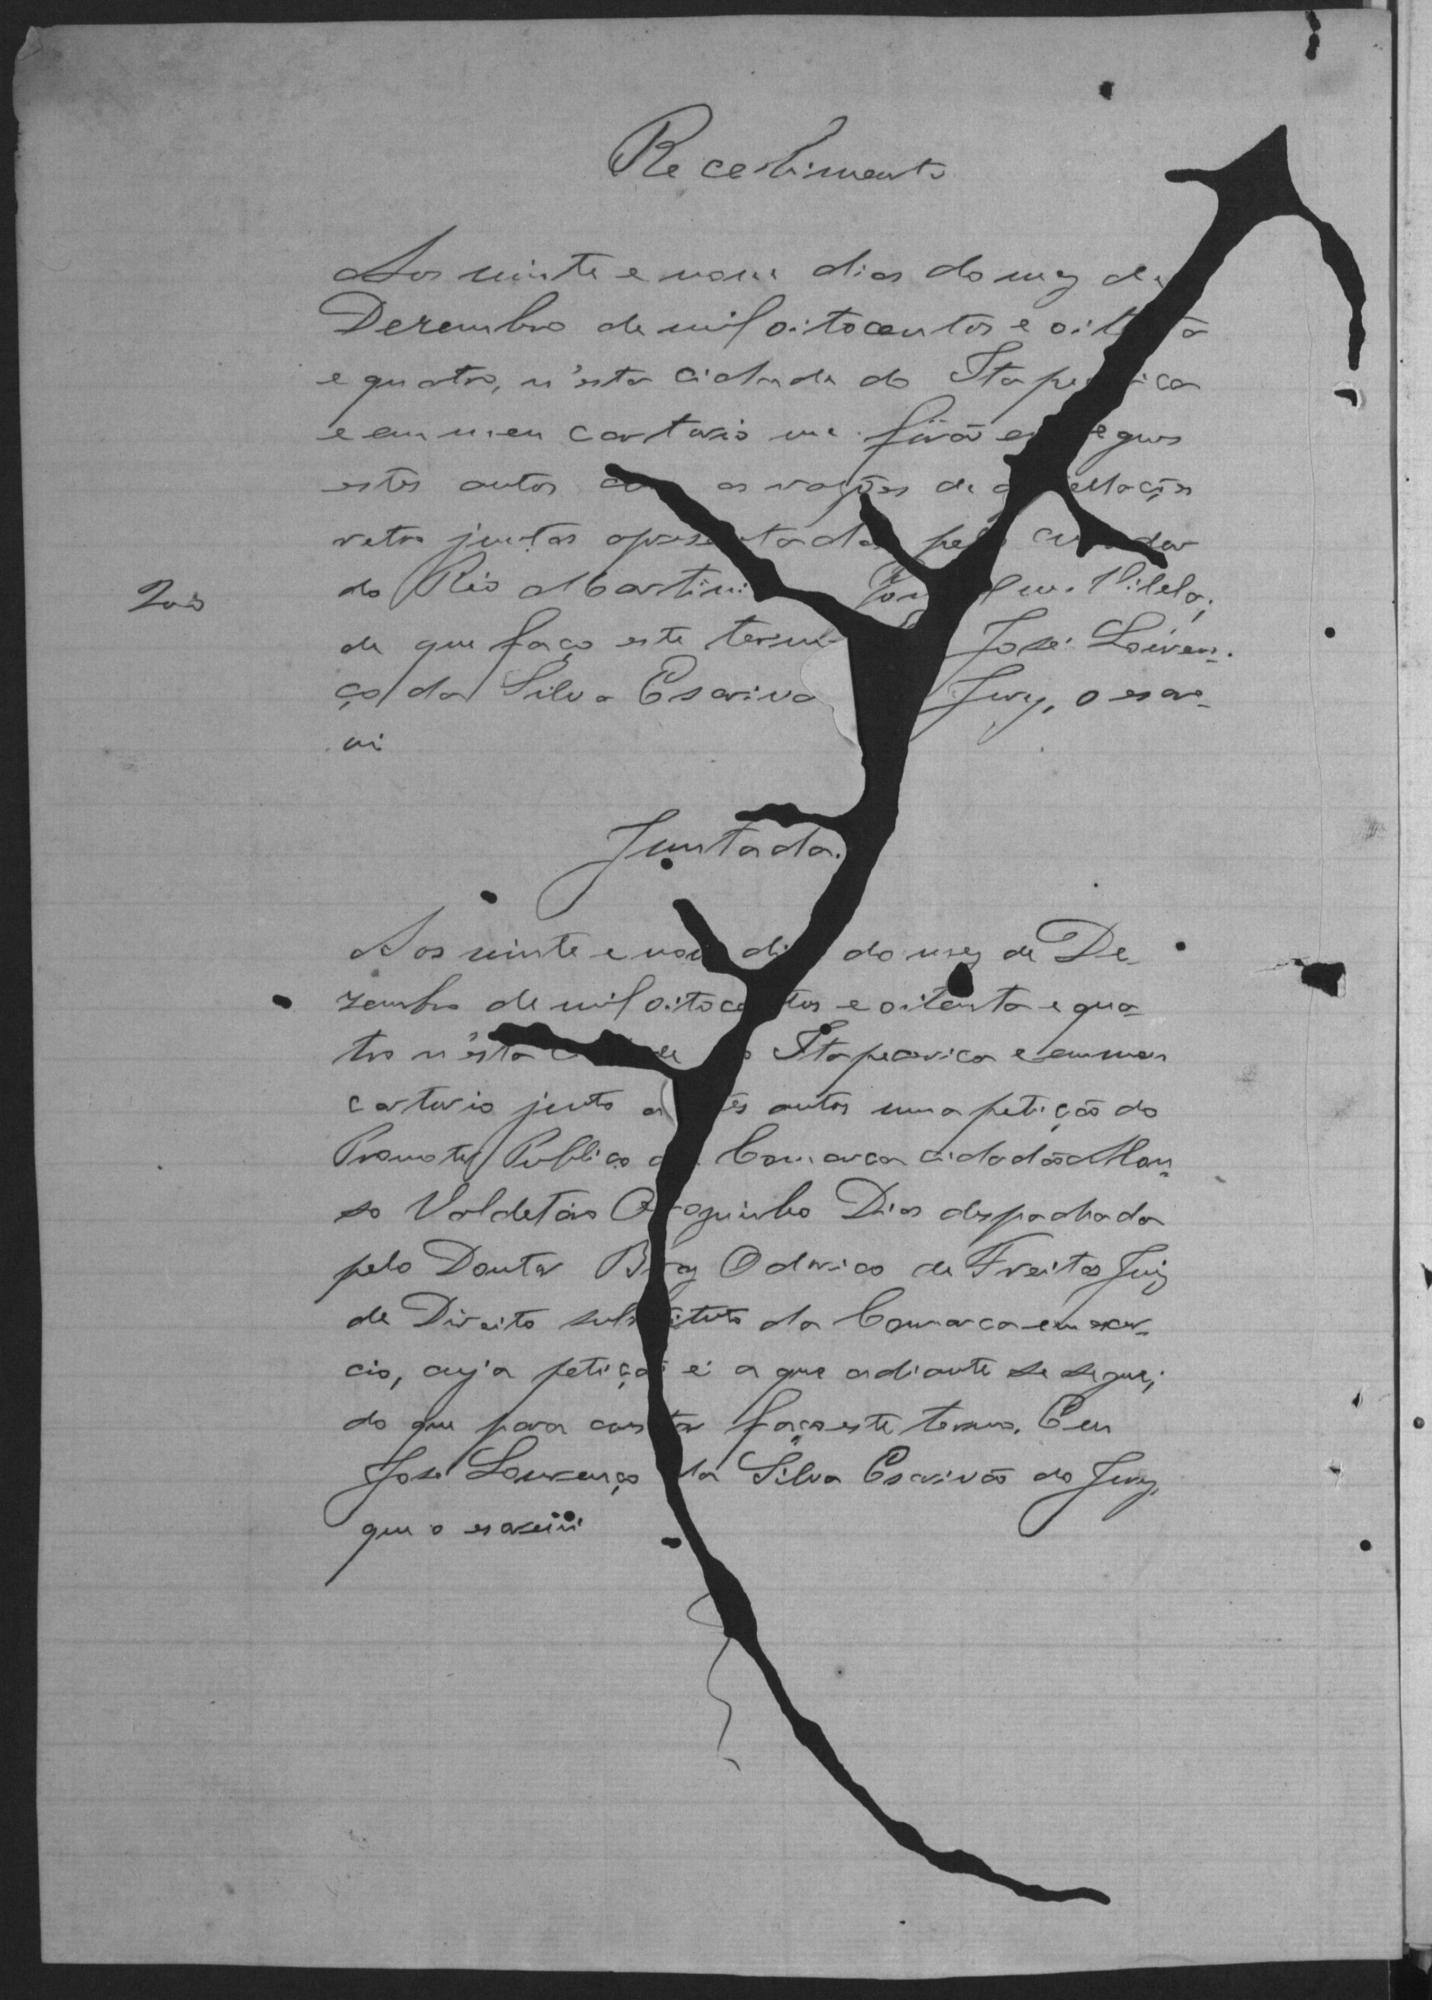 Recebimento
Aos vinte e nove dias do mez de
Dezembro de mil oitocentos e oitenta
e quatro, n'esta cidade do Itapecerica
e em meu cartorio me forão entregues
estes autos com as rasões de appellação
retro juntas apresentadas pelo curador
do Réo Martini
200
de que faço este termo José Louren-
ço da Silva Escrivão Jury, o escre-
vi
Juntada.
Aos vinte e nove dias do mez de De-
zembro de mil oitocentos e oitenta e qua-
tro n'esta cidade do Itapecerica e em meu
cartorio junto a estes autos uma petição do
Promotor Publico da Comarca cidadão Affon-
so Valdetáro Dias despachada
pelo Doutor Braz Odorico de Freitas Juiz
de Direito substituto da Comarca em exer-
cio, cuja petição é a que adiante se segue;
do que para constar faço este termo. Eu
José Lourenço da Silva Escrivão do Jury,
que o escrevi